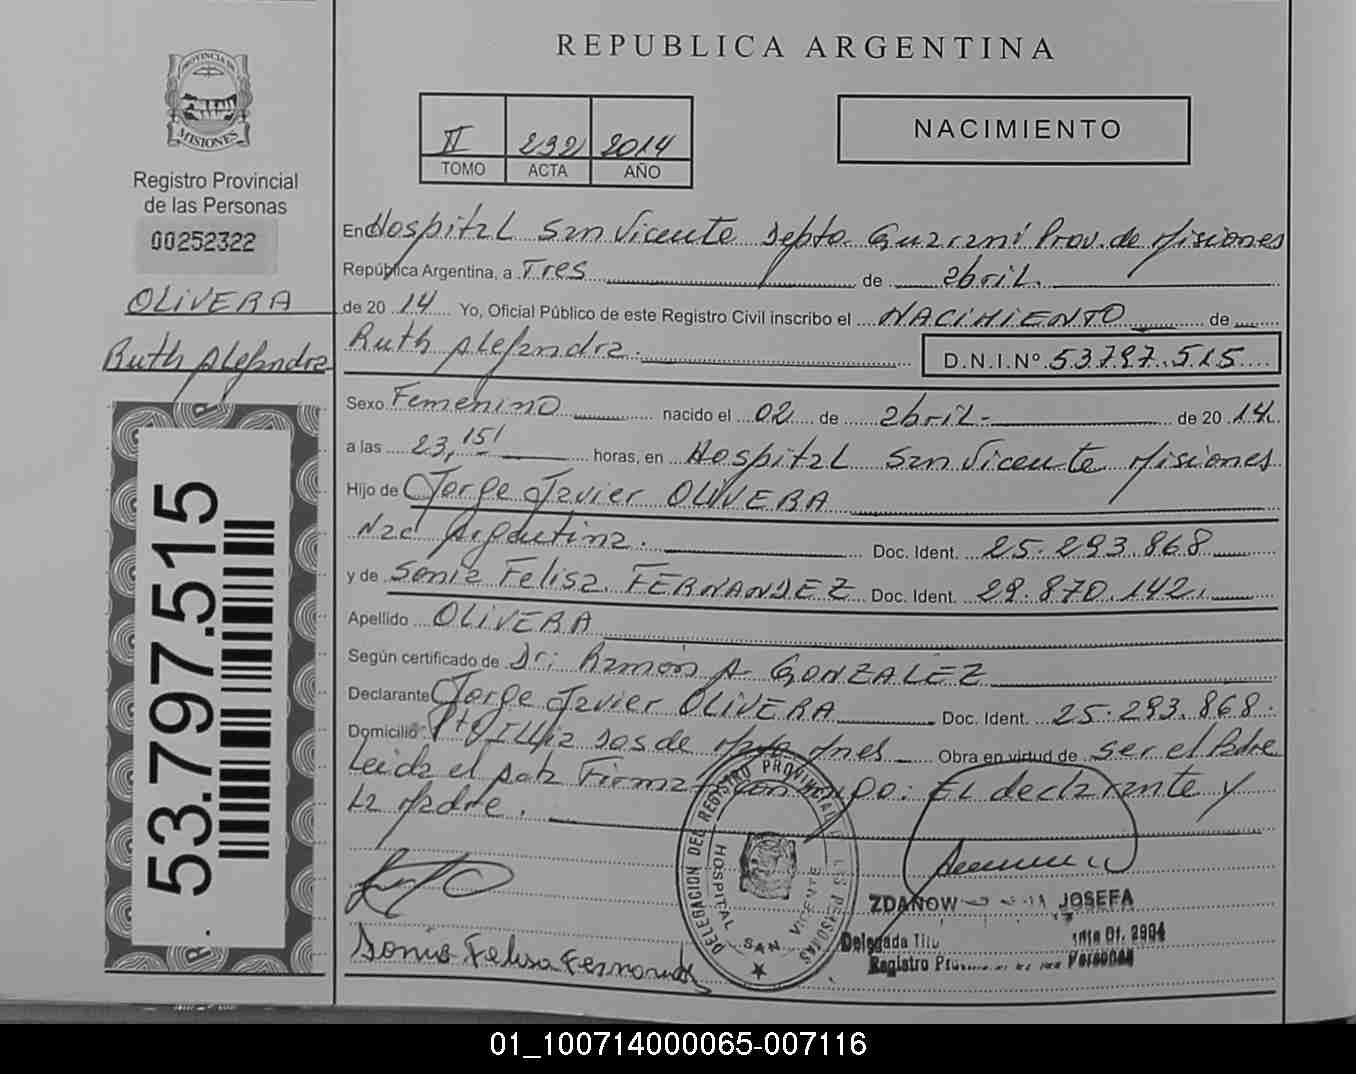 REPUBLICA ARGENTINA
PROVINCIA DE
MISIONES
Registro Provincial
de las Personas
00252322
OLIVERA
Ruth Alejandra
53.797.515
II 292 2014
TOMO ACTA AÑO
NACIMIENTO
En Hospital San Vicente Depto. Guaraní Prov. de Misiones
República Argentina, a Tres de abril.
de 20 14 Yo, Oficial Público de este Registro Civil inscribo el NACIMIENTO de
Ruth Alejandra. D.N.I.Nº 53.797.515
Sexo Femenino nacido el 02 de abril- de 20 14
a las 23,15 horas, en Hospital San Vicente Misiones
Hijo de Jorge Javier OLIVERA
Nac Argentina. Doc. Ident. 25.293.868
y de Sonia Felisa FERNANDEZ Doc. Ident. 29.870.142
Apellido OLIVERA
Según certificado de Dr: Ramón A GONZALEZ
Declarante Jorge Javier OLIVERA Doc. Ident. 25.293.868.
Domicilio Obra en virtud de ser el Padre
Leida el acta Firma conmigo: El declarante y
La Madre.
DELEGACION DEL REGISTRO PROVINCIAL DE LAS PERSONAS
HOSPITAL SAN VICENTE
ZDANOW JOSEFA
Delegada
Registro Personas
Sonia Felisa Fernandez
01_100714000065-007116